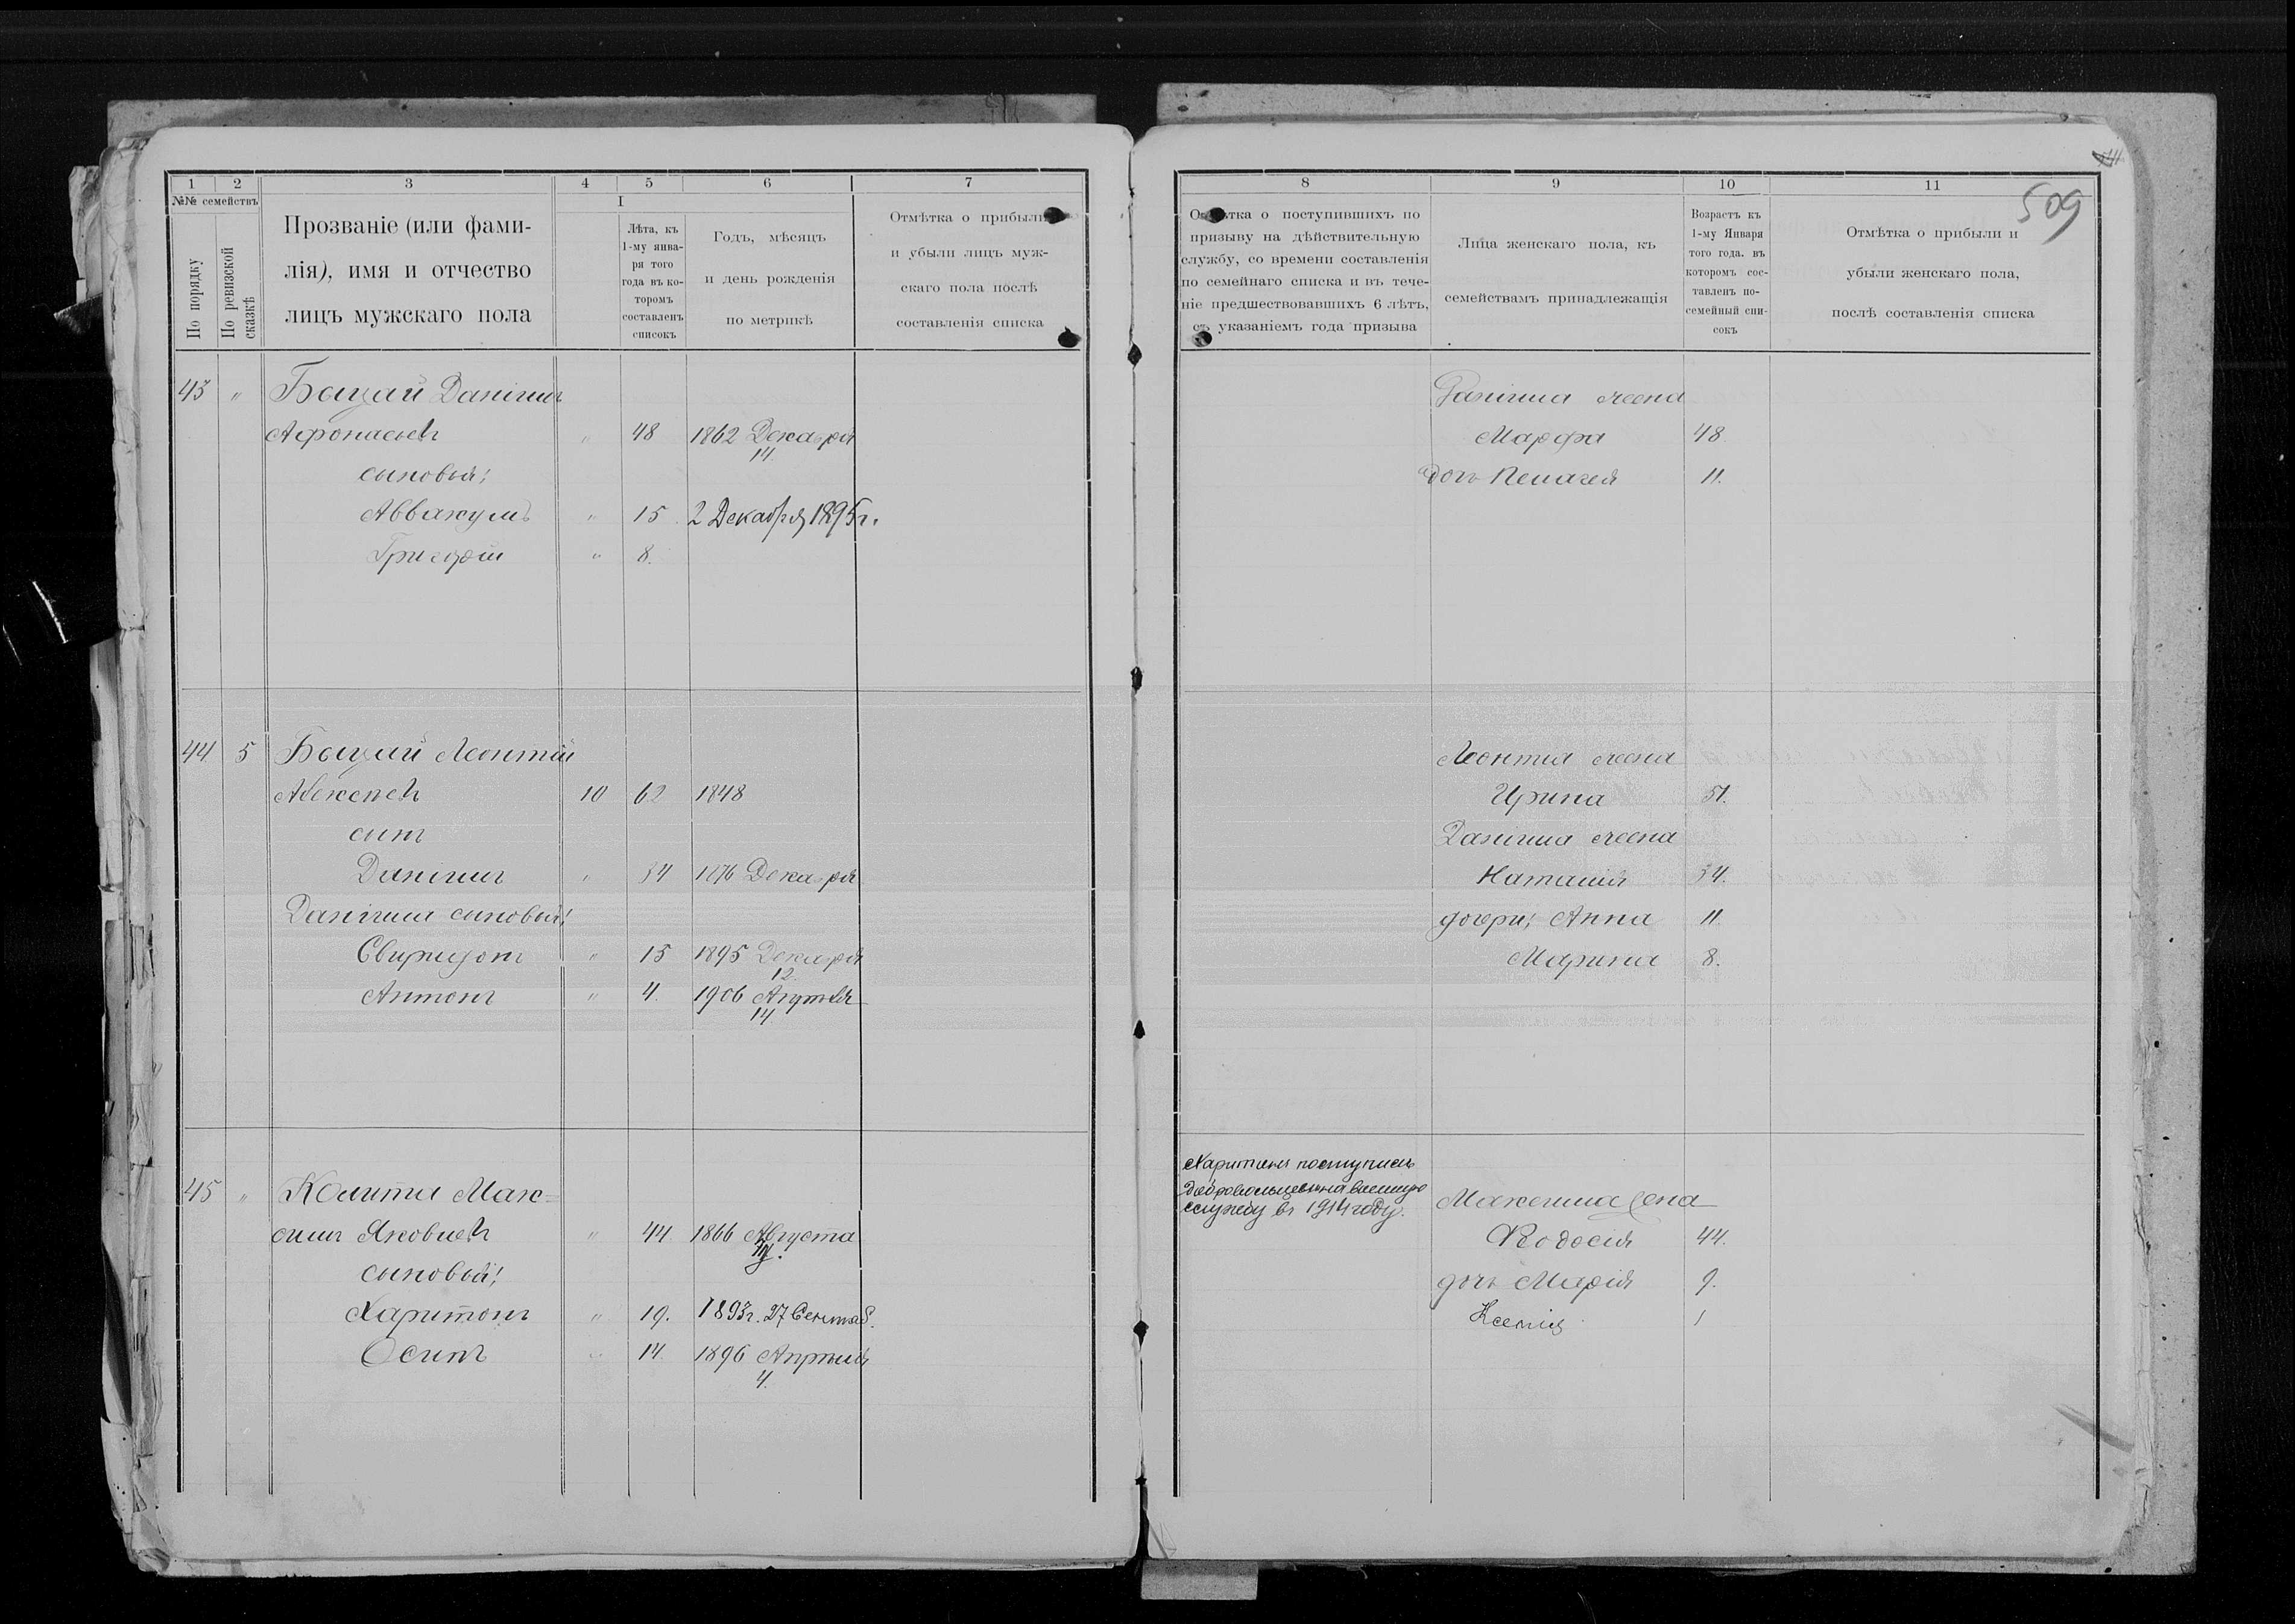 1 2 3 4 5 6 7
№№ семействъ
По порядку
По ревизской сказкѣ
Прозваніе (или фами-
лія), имя и отчество
лицъ мужскаго пола
I
Лѣта, къ
1-му янва-
ря того
года въ ко-
торомъ
составленъ
списокъ
Годъ, мѣсяцъ
и день рожденія
по метрикѣ
Отмѣтка о прибыли
и убыли лицъ муж-
скаго пола послѣ
составленія списка
43 " Данiилъ
Афонасьев " 48 1862 Декабря
14
сыновья:
Аввакумъ " 15 2 Декабря 1895 г.
Григорiй " 8.
44 5 Леонтiй
Алексеев 10 62 1848
сынъ
Данiилъ " 34 1876 Декабря
Данiила сыновья:
Свиридонъ " 15 1895 Декабря
12
Антонъ " 4. 1906 Апреля
14
45 " Мак-
симъ Яковлев " 44 1866 Августа
сыновья:
Харитонъ " 19. 1893 г. 27 Сентяб.
Осипъ " 14. 1896 Апрѣля
4.
8 9 10 11
509
Отмѣтка о поступившихъ по
призыву на дѣйствительную
службу, со времени составленія
по семейнаго списка и въ тече-
ніе предшествовавшихъ 6 лѣтъ,
съ указаніемъ года призыва
Лица женскаго пола, къ
семействамъ принадлежащія
Возрастъ къ
1-му Января
того года. въ
которомъ сос-
тавленъ по-
семейный спи-
сокъ
Отмѣтка о прибыли и
убыли женскаго пола,
послѣ составленія списка
Данiила жена
Марфа 48.
дочь Пелагея 11.
Леонтия жена
Ирина 51.
Данiила жена
Наталия 34.
дочери: Анна 11.
Марина 8.
Харитонъ поступилъ
добровольцемъ на военную
службу въ 1914 году.
Максима жена
Феодосiя 44.
дочь Марiя 9.
Ксенiя 1